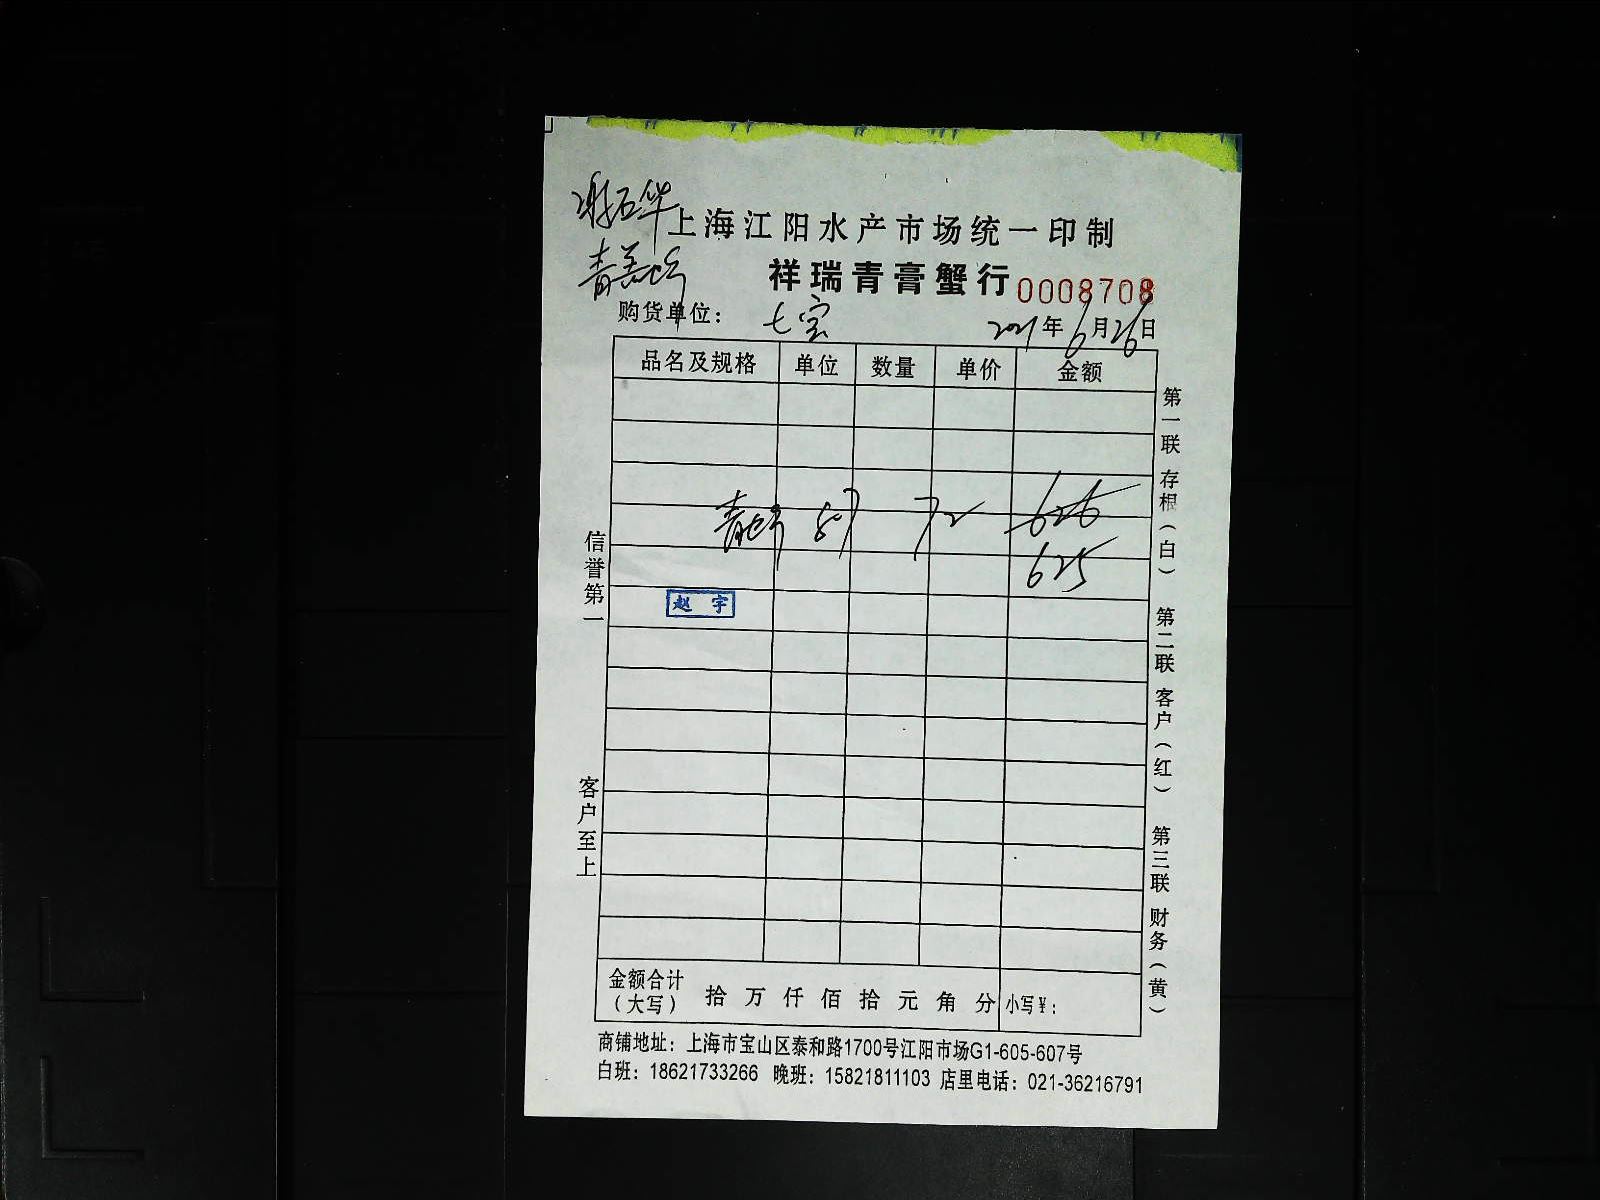 上海江阳水产市场统一印制
祥瑞青膏蟹行 0008708
购货单位： 七宝 2021年6月26日
品名及规格 单位 数量 单价 金额
72 626
625
赵宇
信誉第一
客户至上
第一联 存根（白） 第二联 客户（红） 第三联 财务（黄）
金额合计（大写） 拾 万 仟 佰 拾 元 角 分 小写￥：
商铺地址：上海市宝山区泰和路1700号江阳市场G1-605-607号
白班：18621733266 晚班：15821811103 店里电话：021-36216791